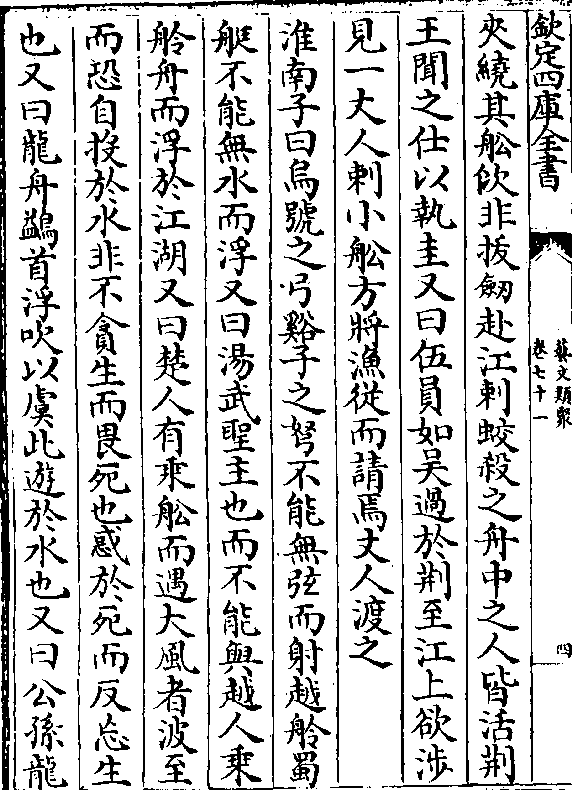 欽定四庫全書
藝文類聚
卷七十一
四
夾繞其舩佽非拔劒赴江刺蛟殺之舟中之人皆活荆
王聞之仕以執圭又曰伍員如吴過於荆至江上欲涉
見一丈人刺小舩方將漁從而請焉丈人渡之
淮南子曰烏號之弓谿子之弩不能無弦而射越舲蜀
艇不能無水而浮又曰湯武聖主也而不能與越人乘
舲舟而浮於江湖又曰楚人有乘舩而遇大風者波至
而恐自投於水非不貪生而畏死也惑於死而反忘生
也又曰龍舟鷁首浮吹以虞此遊於水也又曰公孫龍